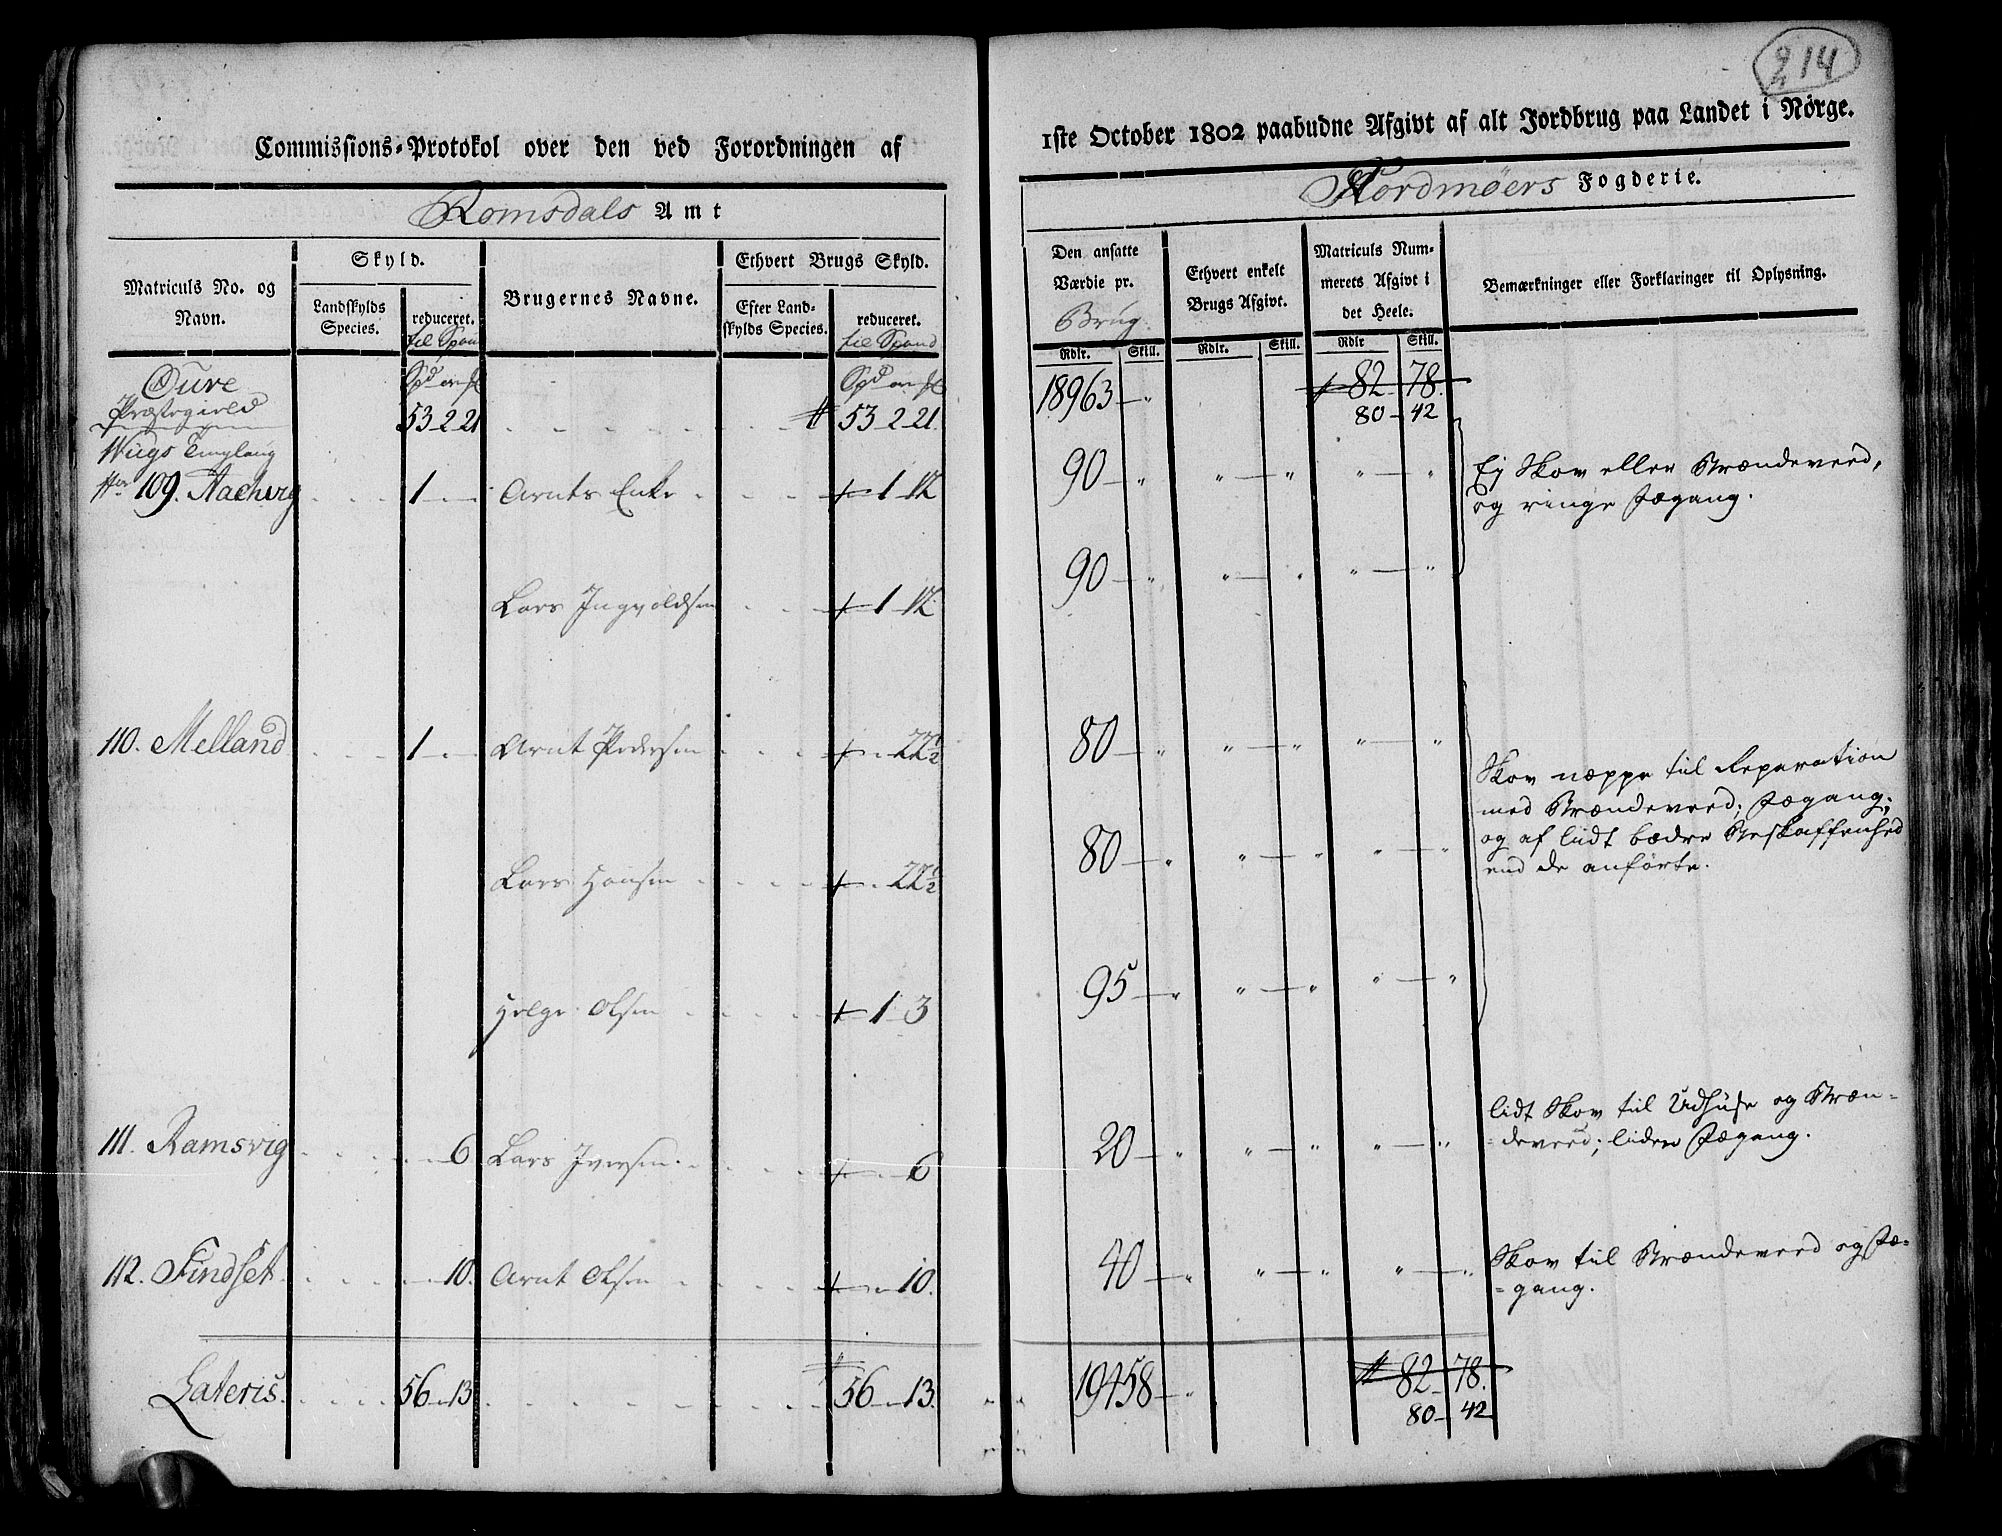 214
Commissions-Protokol over den ved Forordningen af
1ste October 1802 paabudne Afgivt af alt Jordbrug paa Landet i Nörge.
Romsdals Amt
Nordmöers Fogderie.
Matriculs No. og Navn.
Skyld.
Landskylds Species.
reduceret.
til Spand
Brugernes Navne.
Ethvert Brugs Skyld.
Efter Landskylds Species.
reduceret.
til Spand
Den ansatte Værdie pr.
Brug.
Rdlr. Skill.
Ethvert enkelt Brugs Afgivt.
Rdlr. Skill.
Matriculs Nummerets Afgivt i det Heele.
Rdlr Skill.
Bemærkninger eller Forklaringer til Oplysning.
Oure
Præstegield 53-2-21 53-2-21. 18963 - " 82 78.
80-42
109. 1 Arnts Enke 1-12 90 - " " - " " - " Ej Skov eller Brændeveed,
og ringe Fægang.
Lars Ingvoldsen 1-12 90 - " " - " " - "
110. Melland 1 Arnt Pedersen 22½ 80 - " " - " " - "
Skov næppe til Reparation
med Brændeveed; Fægang;
og af lidt bædre Beskaffenhed
end de anförte.
Lars Hansen 22½ 80 - " " - " " - "
Helge Olsen 1-3 95 - " " - " " - "
111. Ramsvig 6 Lars Iversen 6 20 - " " - " " - " lidt Skov til Udhuse og Bræn-
=deveed; liden Fægang.
112. Findset 10. Arnt Olsen 10. 40 - " " - " " - " Skov til Brændeveed og Fæ=
=gang.
Lateris. 56-13 56-13. 19458 - " 82-78.
80-42